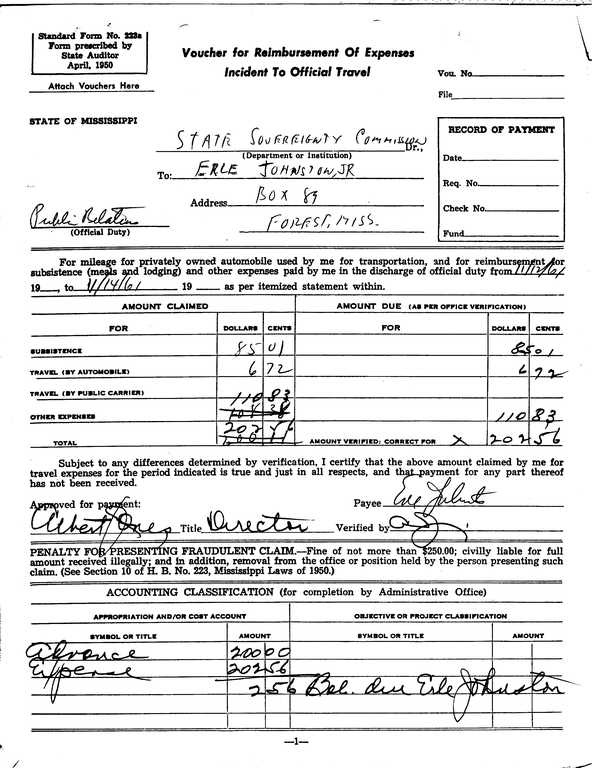 Standard Form No. 223a
Form prescribed by
State Auditor
April, 1950
Attach Vouchers Here
Voucher for Reimbursement Of Expenses
Incident To Official Travel
Vou. No.
File
STATE OF MISSISSIPPI
STATE SOVEREIGNTY COMMISSION Dr.,
(Department or Institution)
To: ERLE JOHNSTON, JR
Address BOX 89
FOREST, MISS.
Public Relations
(Official Duty)
RECORD OF PAYMENT
Date
Req. No.
Check No.
Fund
For mileage for privately owned automobile used by me for transportation, and for reimbursement for
subsistence (meals and lodging) and other expenses paid by me in the discharge of official duty from 11/12/61
19 , to 11/14/61 19 as per itemized statement within.
AMOUNT CLAIMED AMOUNT DUE (AS PER OFFICE VERIFICATION)
FOR DOLLARS CENTS FOR DOLLARS CENTS
SUBSISTENCE 85 01 85 01
TRAVEL (BY AUTOMOBILE) 6 72 6 72
TRAVEL (BY PUBLIC CARRIER) 110 83
OTHER EXPENSES 110 83
TOTAL 202 56 AMOUNT VERIFIED: CORRECT FOR X 202 56
Subject to any differences determined by verification, I certify that the above amount claimed by me for
travel expenses for the period indicated is true and just in all respects, and that payment for any part thereof
has not been received.
Approved for payment: Payee Erle Johnston
Albert Jones Title Director Verified by
PENALTY FOR PRESENTING FRAUDULENT CLAIM.—Fine of not more than $250.00; civilly liable for full
amount received illegally; and in addition, removal from the office or position held by the person presenting such
claim. (See Section 10 of H. B. No. 223, Mississippi Laws of 1950.)
ACCOUNTING CLASSIFICATION (for completion by Administrative Office)
APPROPRIATION AND/OR COST ACCOUNT OBJECTIVE OR PROJECT CLASSIFICATION
SYMBOL OR TITLE AMOUNT SYMBOL OR TITLE AMOUNT
Advance 200 00
Expense 202 56
2 56 Bal. due Erle Johnston
—1—